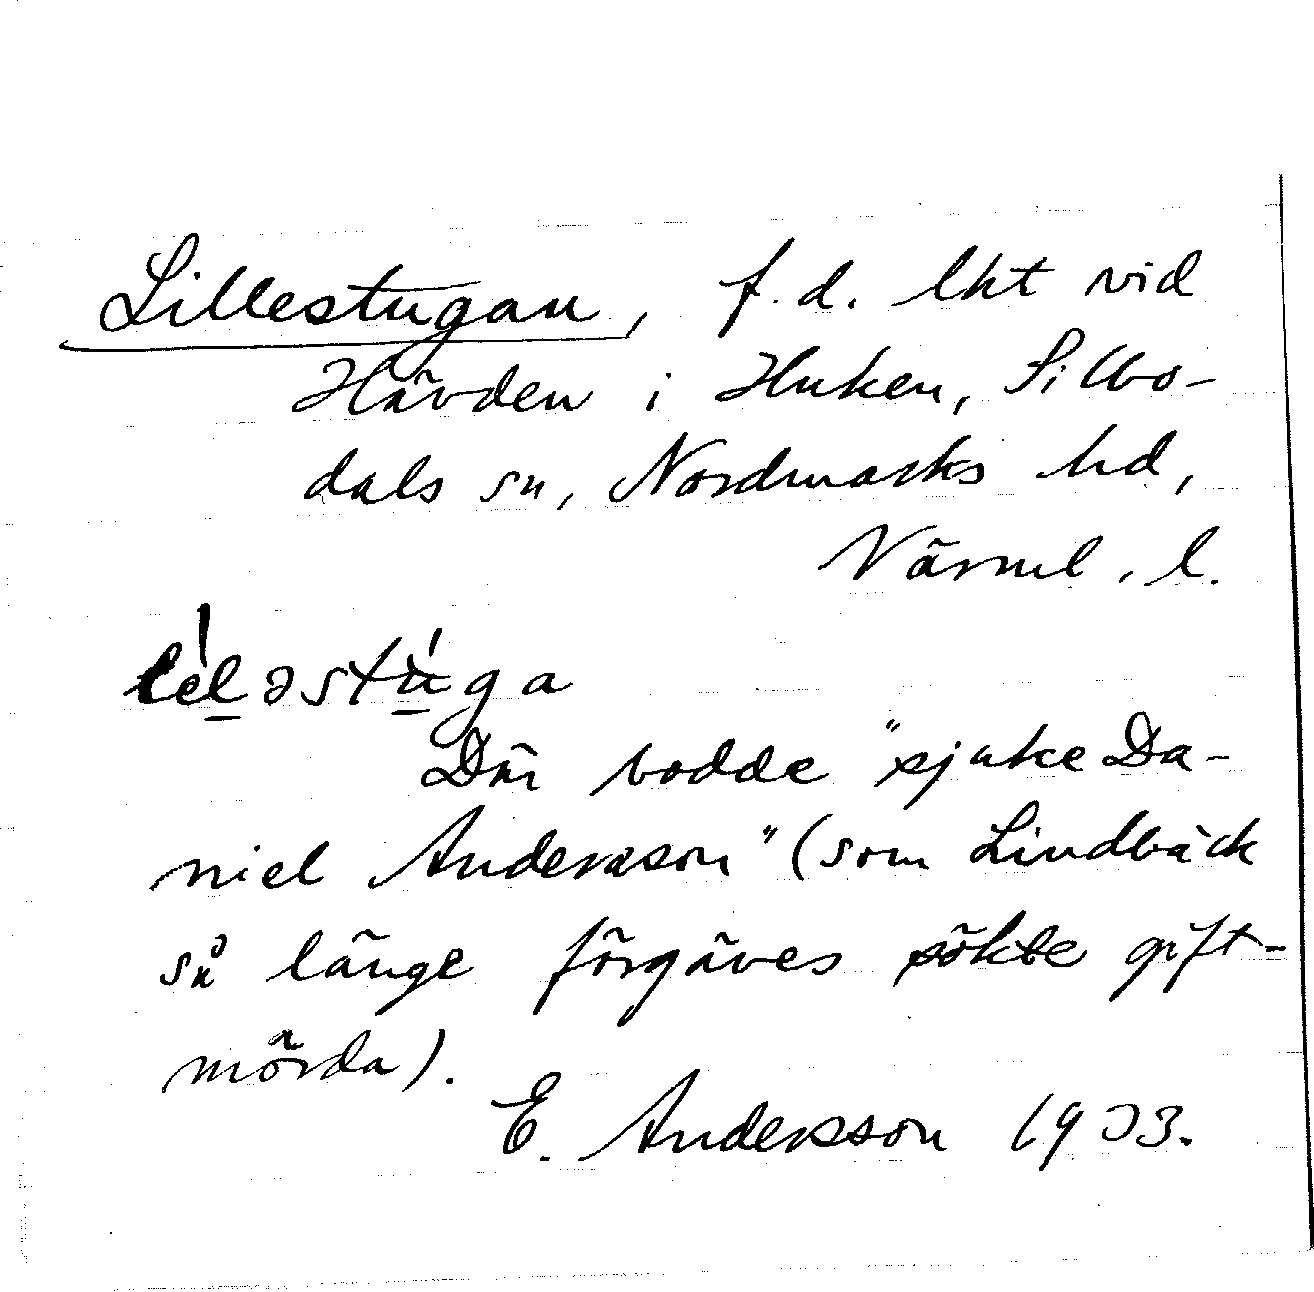 Lillestugan, f.d. lht vid
Hävden i Huken, Silbo-
dals sn, Nordmarks hd,
Värml. l.
lèləstúga
Där bodde "sjuke Da-
niel Andersson" (som Lindbäck
så länge förgäves sökte gift-
mörda).
E. Andersson 1933.